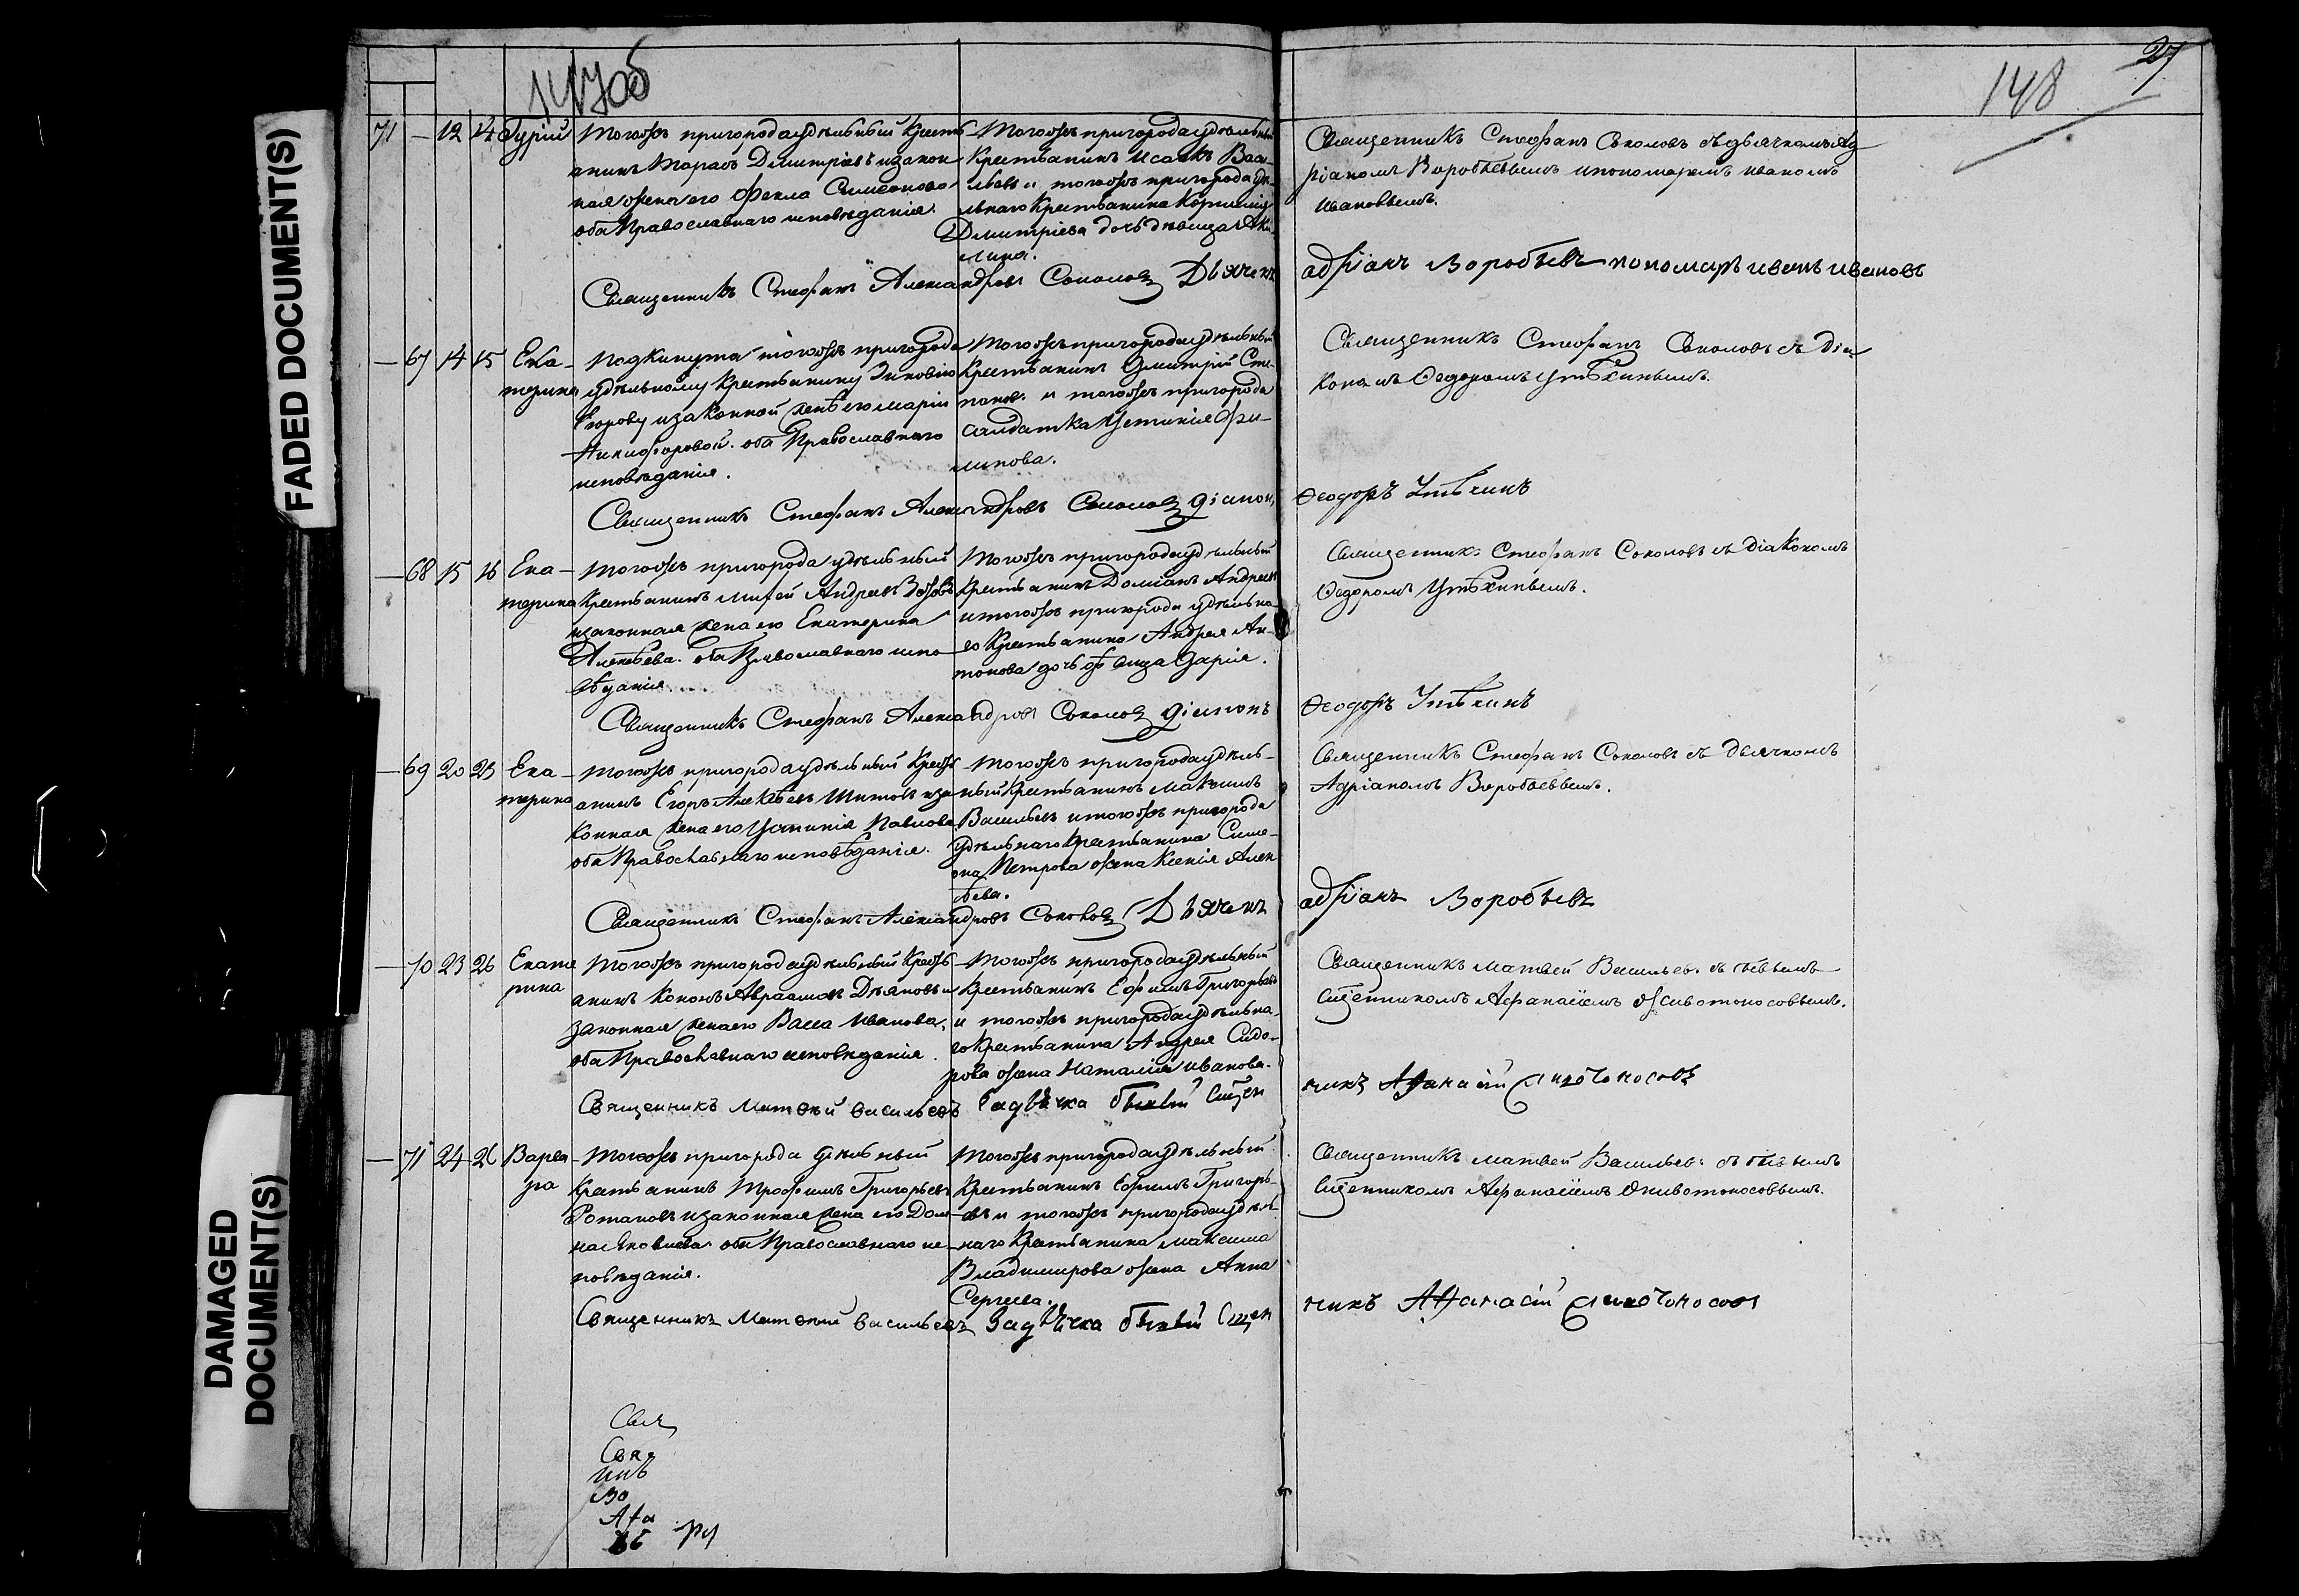 147об
148
27
FADED DOCUMENT(S)
DAMAGED
DOCUMENT(S)
71 — 12 14 Гурій
Тогожъ пригорода удѣльный Кресть-
янинъ Тарасъ Димитріевъ и закон
ная жена его Фекла Симеонова
оба Православнаго исповѣданія.
Тогожъ пригорода удѣльный
Крестьянинъ Исаакъ Васи-
льевъ и тогожъ пригорода удѣ-
льнаго Крестьянина Корнилія
Димитріева дочь дѣвица Аки-
лина.
Священникъ Стефанъ Соколовъ съ дьячкомъ Ад-
ріаномъ Воробьевымъ и пономаремъ Иваномъ
Ивановымъ.
Священникъ Стефанъ Александровъ Соколовъ Дьячекъ
адріанъ Воробьевъ пономарь иванъ ивановъ
— 67 14 15 Ека-
терина
Подкинута тогожъ пригорода
удѣльному Крестьянину Зиновію
Егорову и законной женѣ его Маріи
Никифоровой. оба Православнаго
исповѣданія.
Тогожъ пригорода удѣльный
Крестьянинъ Димитрій Сте-
пановъ и тогожъ пригорода
салдатка Устинія Фи-
липова.
Священникъ Стефанъ Соколовъ съ Діа-
кономъ Ѳедоромъ Утѣхинымъ.
Священникъ Стефанъ Александровъ Соколовъ діаконъ
Ѳеодоръ Утѣхинъ
— 68 15 16 Ека-
терина
Тогожъ пригорода удѣльный
Крестьянинъ Андреевъ
и законная жена его Екатерина
Алексѣева. оба Православнаго испо-
вѣданія.
Тогожъ пригорода удѣльный
Крестьянинъ Доміанъ Андреевъ
и тогожъ пригорода удѣльна-
го Крестьянина Андрея Ан-
тонова дочь дѣвица Дарія.
Священникъ Стефанъ Соколовъ съ Діакономъ
Ѳедоромъ Утѣхинымъ.
Священникъ Стефанъ Александровъ Соколовъ діаконъ
Ѳеодоръ Утѣхинъ
— 69 20 23 Ека-
терина
Тогожъ пригорода удѣльный Кресть-
янинъ Егоръ Алексѣевъ Шитовъ и за
конная жена его Устинія Павлова
оба Православнаго исповѣданія.
Тогожъ пригорода удѣль-
ный Крестьянинъ Максимъ
Васильевъ и тогожъ пригорода
удѣльнаго Крестьянина Симе-
она Петрова жена Ксенія Алек
сѣева.
Священникъ Стефанъ Соколовъ съ дьячкомъ
Адріаномъ Воробьевымъ.
Священникъ Стефанъ Александровъ Соколовъ Дьячекъ
адріанъ Воробьевъ
— 70 23 26 Екате
рина
Тогожъ пригорода удѣльный Кресть
янинъ Кононъ Авраамовъ Дѣяновъ и
законная жена его Васса Иванова.
оба Православнаго исповѣданія.
Тогожъ пригорода удѣльный
Крестьянинъ Ефимъ Григорьевъ
и тогожъ пригорода удѣльна-
го Крестьянина Андрея Сидо-
рова жена Наталія Иванова.
Священникъ Матвей Васильевъ съ бывымъ
Сщенникомъ Афанасіемъ Животоносовымъ.
Священникъ Матѳей Васильевъ Задьячка бывый Сщен
никъ Афанасій Живоносовъ
— 71 24 26 Варва
ра
Тогожъ пригорода удѣльный
Крестьянинъ Трофимъ Григорьевъ
Романовъ и законная жена его Дом-
на Яковлева. оба Православнаго ис-
повѣданія.
Тогожъ пригорода удѣльный
Крестьянинъ Ефимъ Григорь-
евъ и тогожъ пригорода удѣль-
наго Крестьянина Максима
Владимирова жена Анна
Сергеева.
Священникъ Матвей Васильевъ съ бывымъ
Сщенникомъ Афанасіемъ Животоносовымъ.
Священникъ Матѳей Васильевъ Задьячка бывый Сщен
никъ Афанасій
Свя
Свя
никъ
Во
Афа